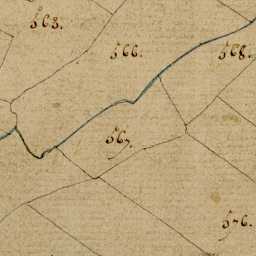 563.
566.
568.
567.
576.